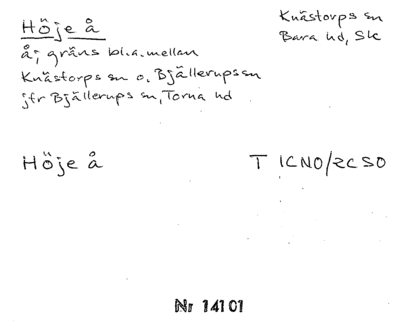 Höje å
Knästorps sn
Bara hd, Sk
å; gräns bl.a. mellan
Knästorps sn o. Bjällerups sn
jfr Bjällerups sn, Torna hd
Höje å
T 1CNO/2CSO
Nr 14101